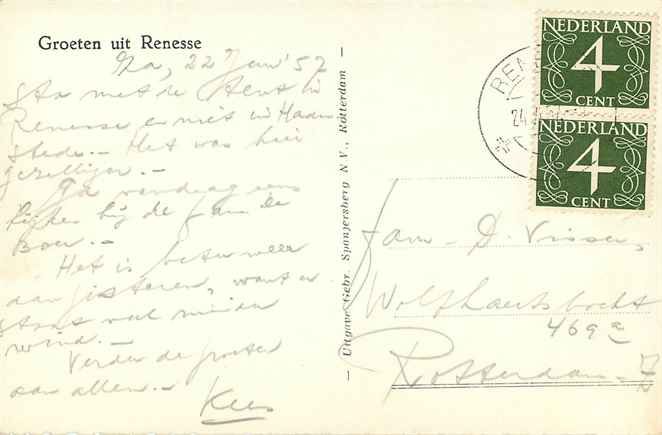 Groeten uit Renesse
Ma, 22 Juni '57
Sta met de tent in
Renesse en niet in Haam
stede.- Het was hier
gezelliger.-
Ga vandaag eens
kijken bij de fam. de
Boer.-
Het is beter weer
dan gisteren, want er
staat veel minder
wind.-
Verder de groeten
aan allen.-
Kees
— Uitgave Gebr. Spanjersberg N.V., Rotterdam —
NEDERLAND
4
CENT
NEDERLAND
4
CENT
REN
24
Fam. D. Visser,
Wolphaertsbocht
469a
Rotterdam-Z